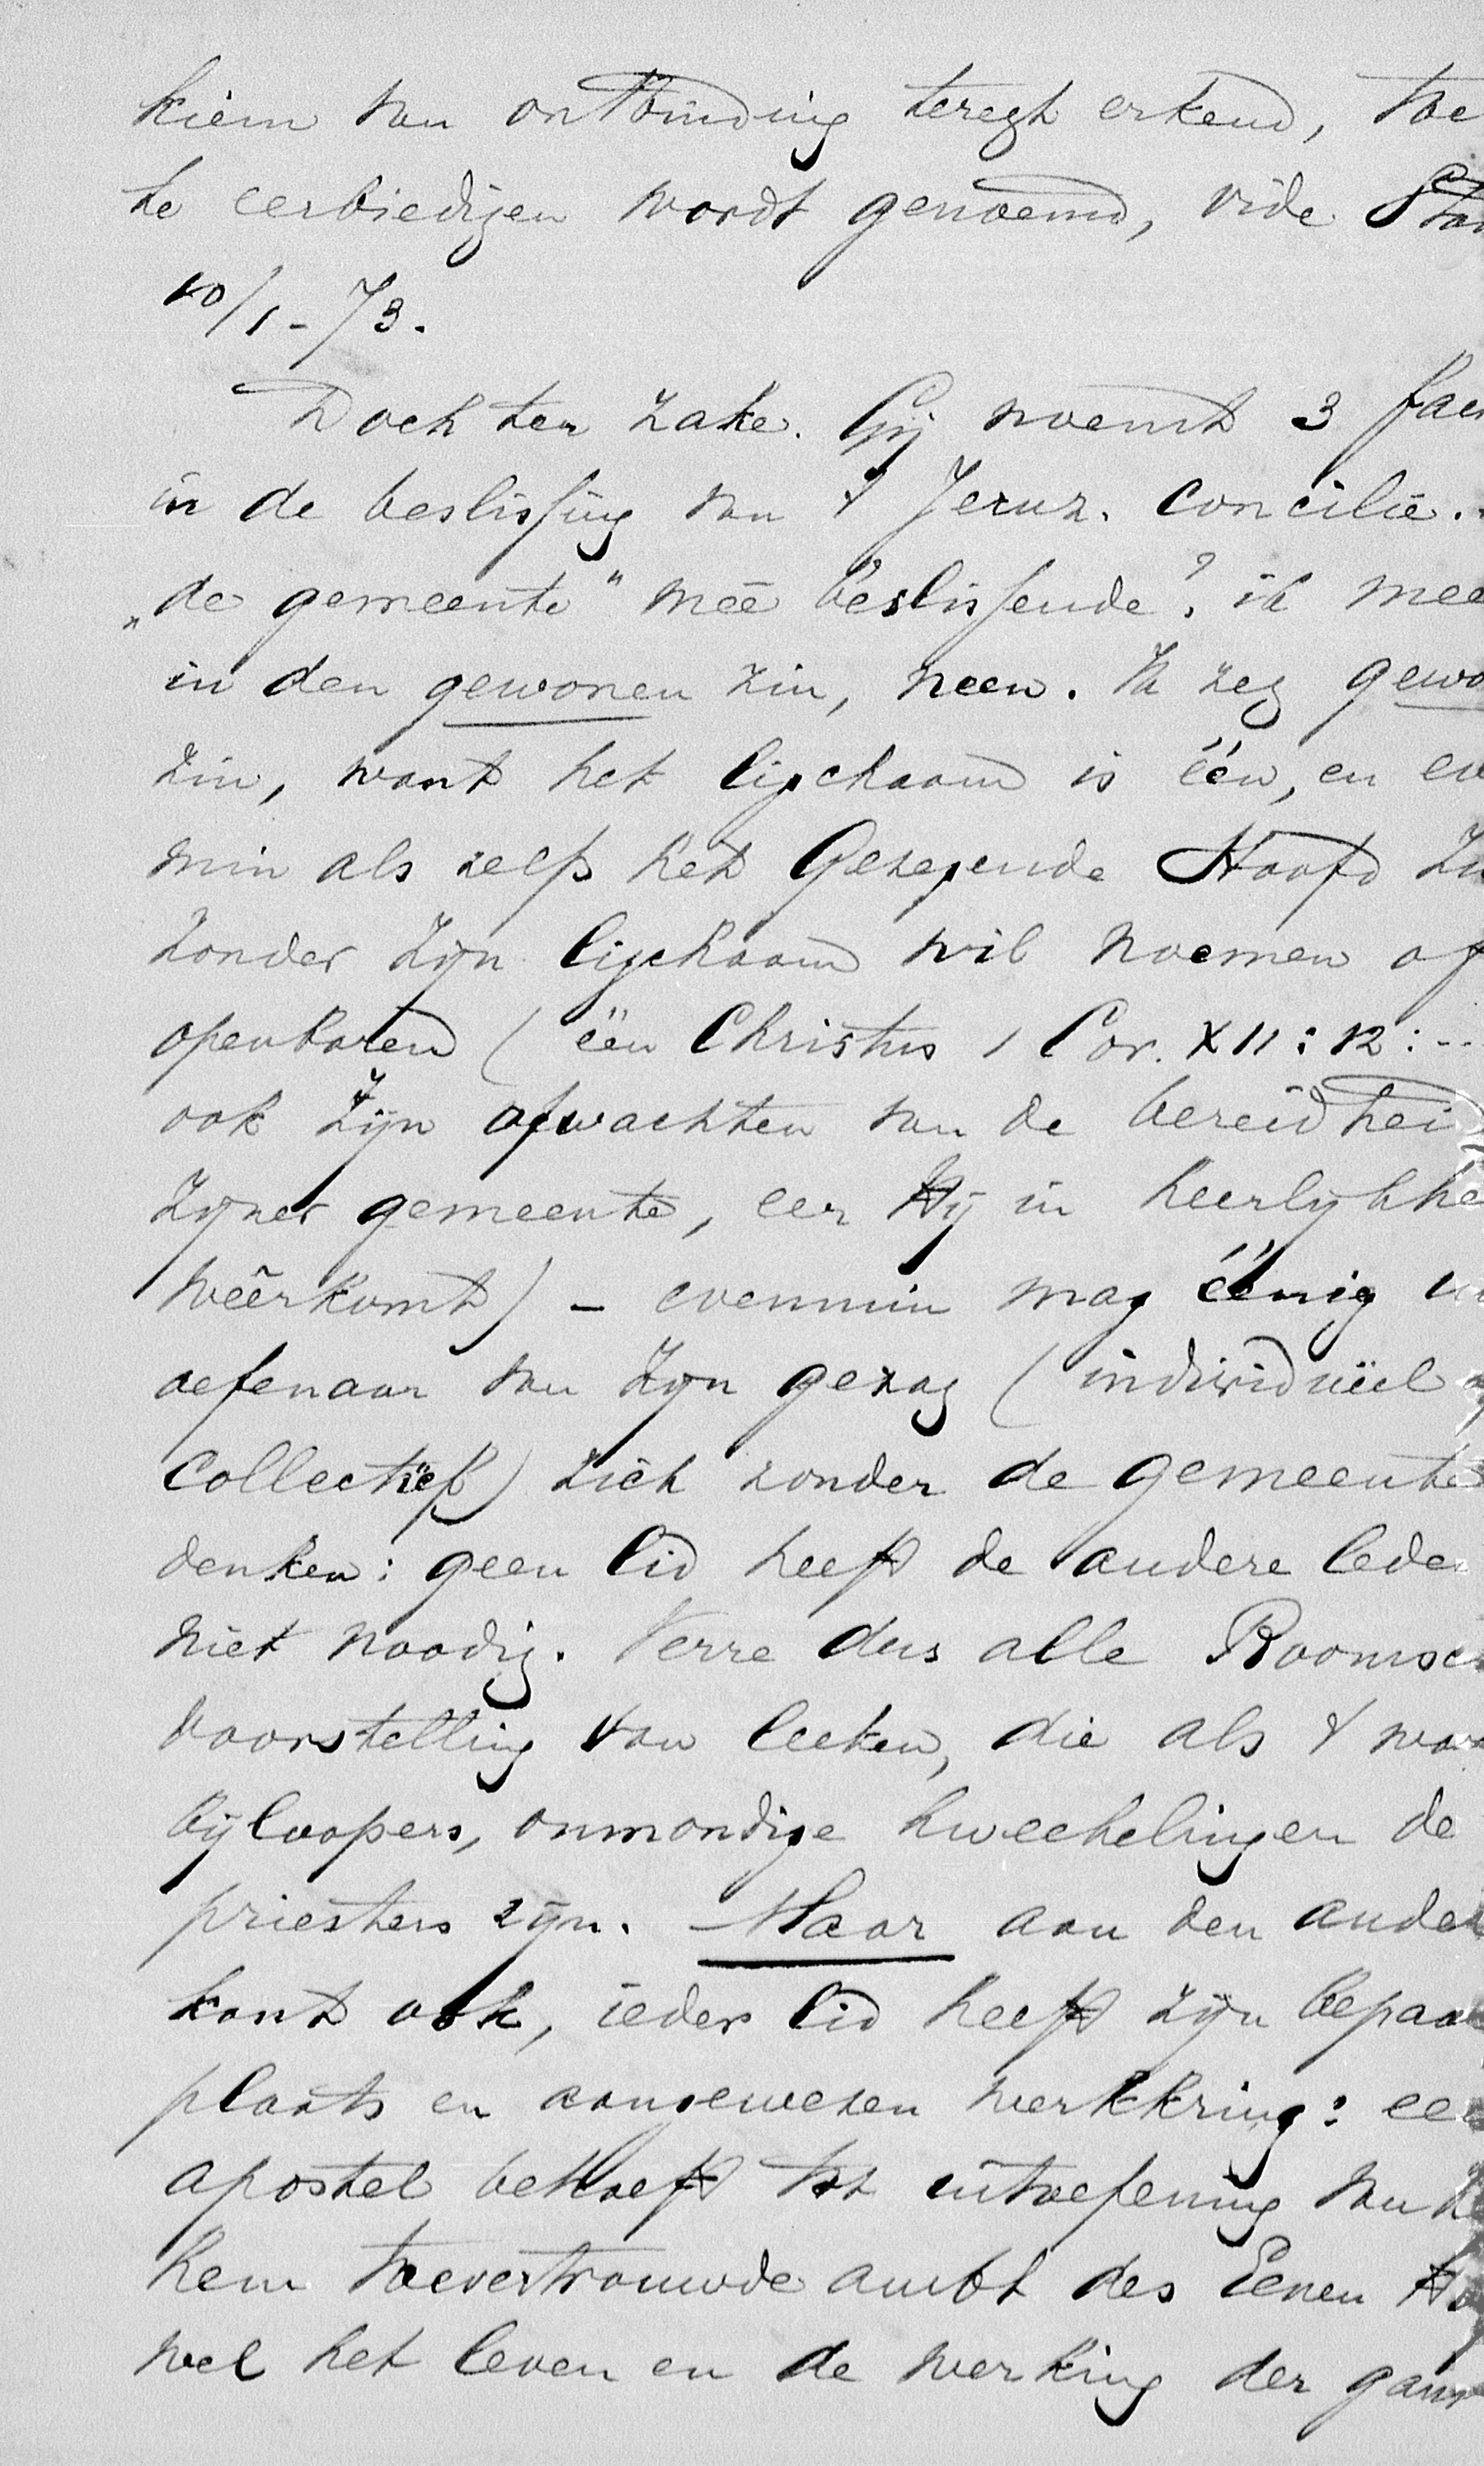 kiem van ontbinding teregt erkend, toe
te eerbiedigen wordt genoemd, vide Stan
10/1-73.
Doch ter zake. Gij noemt 3 fac
in de beslissing van 't Jeruz. concilie.
„de gemeente" mêe beslissende? ik mee
in den gewonen zin, neen. Ik zeg gewo
zin, want het ligchaam is één, en ev
min als zelfs het Gezegende Hoofd Zi
zonder Zijn ligchaam wil noemen of
openbaren (één Christus 1 Cor. XII: 12: --
ook Zijn afwachten van de bereidhei
Zijner gemeente, eer Hij in heerlijkhe
wêerkomt) – evenmin mag éénig ui
oefenaar van Zijn gezag (individuëel
collectief) zich zonder de gemeente
denken: geen lid heeft de andere lede
niet noodig. Verre dus alle Roomsc
voorstelling van leeken, die als 't war
bijloopers, onmondige kweekelingen de
priesters zijn. Maar aan den ander
kant ook, ieder lid heeft zijn bepaa
plaats en aangewezen werkkring: ee
apostel behoeft tot uitoefening van h
hem toevertrouwde ambt des Eenen
wel het leven en de werking der gans